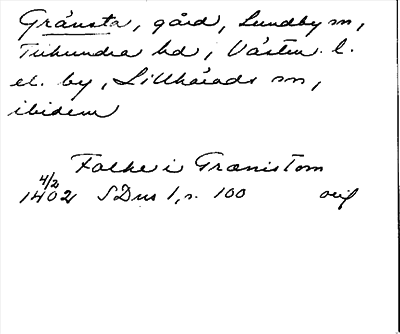 Gränsta, gård, Lundby sn,
Tuhundra hd, Västm. l.
el. by, Lillhärads sn,
ibidem
Falke i Granistom
4/2
1402 SDns 1, s. 100 orig